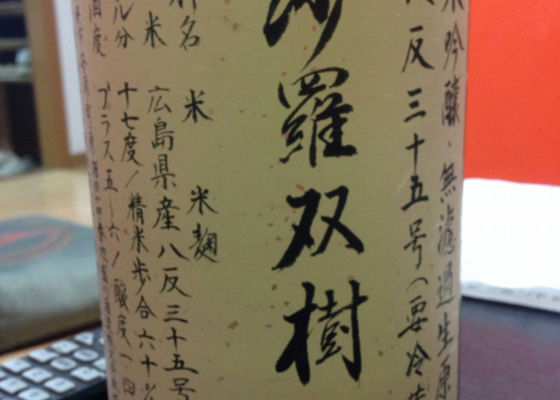 米吟醸・無濾過生原
反三十五号(要冷蔵
沙羅双樹
料名 米 米麹
米 広島県産八反三十五号
ル分 十七度/精米歩合六十
酒度 プラス五〜六/酸度一・四